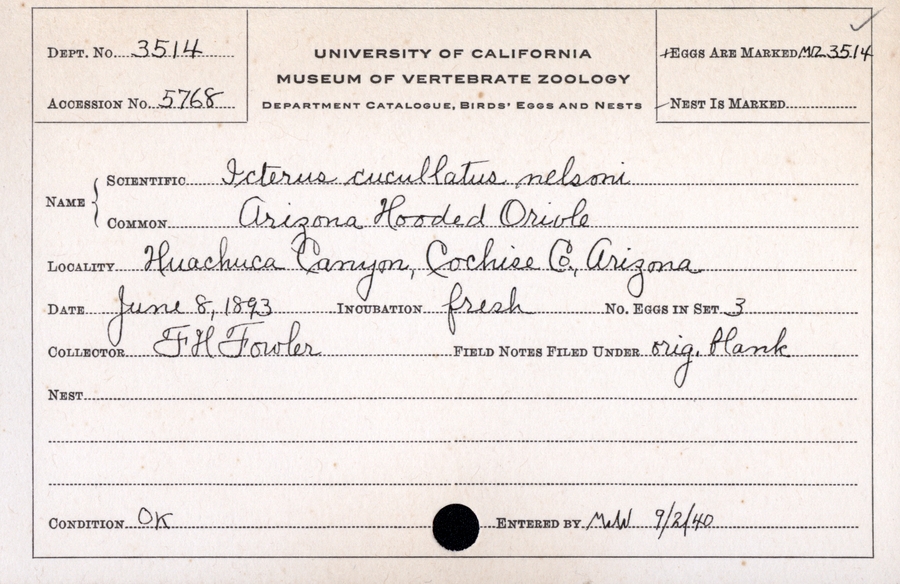 DEPT. No. 3514
ACCESSION No. 5768
UNIVERSITY OF CALIFORNIA
MUSEUM OF VERTEBRATE ZOOLOGY
DEPARTMENT CATALOGUE, BIRDS' EGGS AND NESTS
EGGS ARE MARKED MVZ 3514
NEST IS MARKED
NAME
SCIENTIFIC Icterus cucullatus nelsoni
COMMON Arizona Hooded Oriole
LOCALITY Huachuca Canyon, Cochise Co., Arizona
DATE June 8, 1893 INCUBATION fresh No. EGGS IN SET 3
COLLECTOR F H Fowler FIELD NOTES FILED UNDER orig. blank
NEST
CONDITION OK ENTERED BY 9/2/40